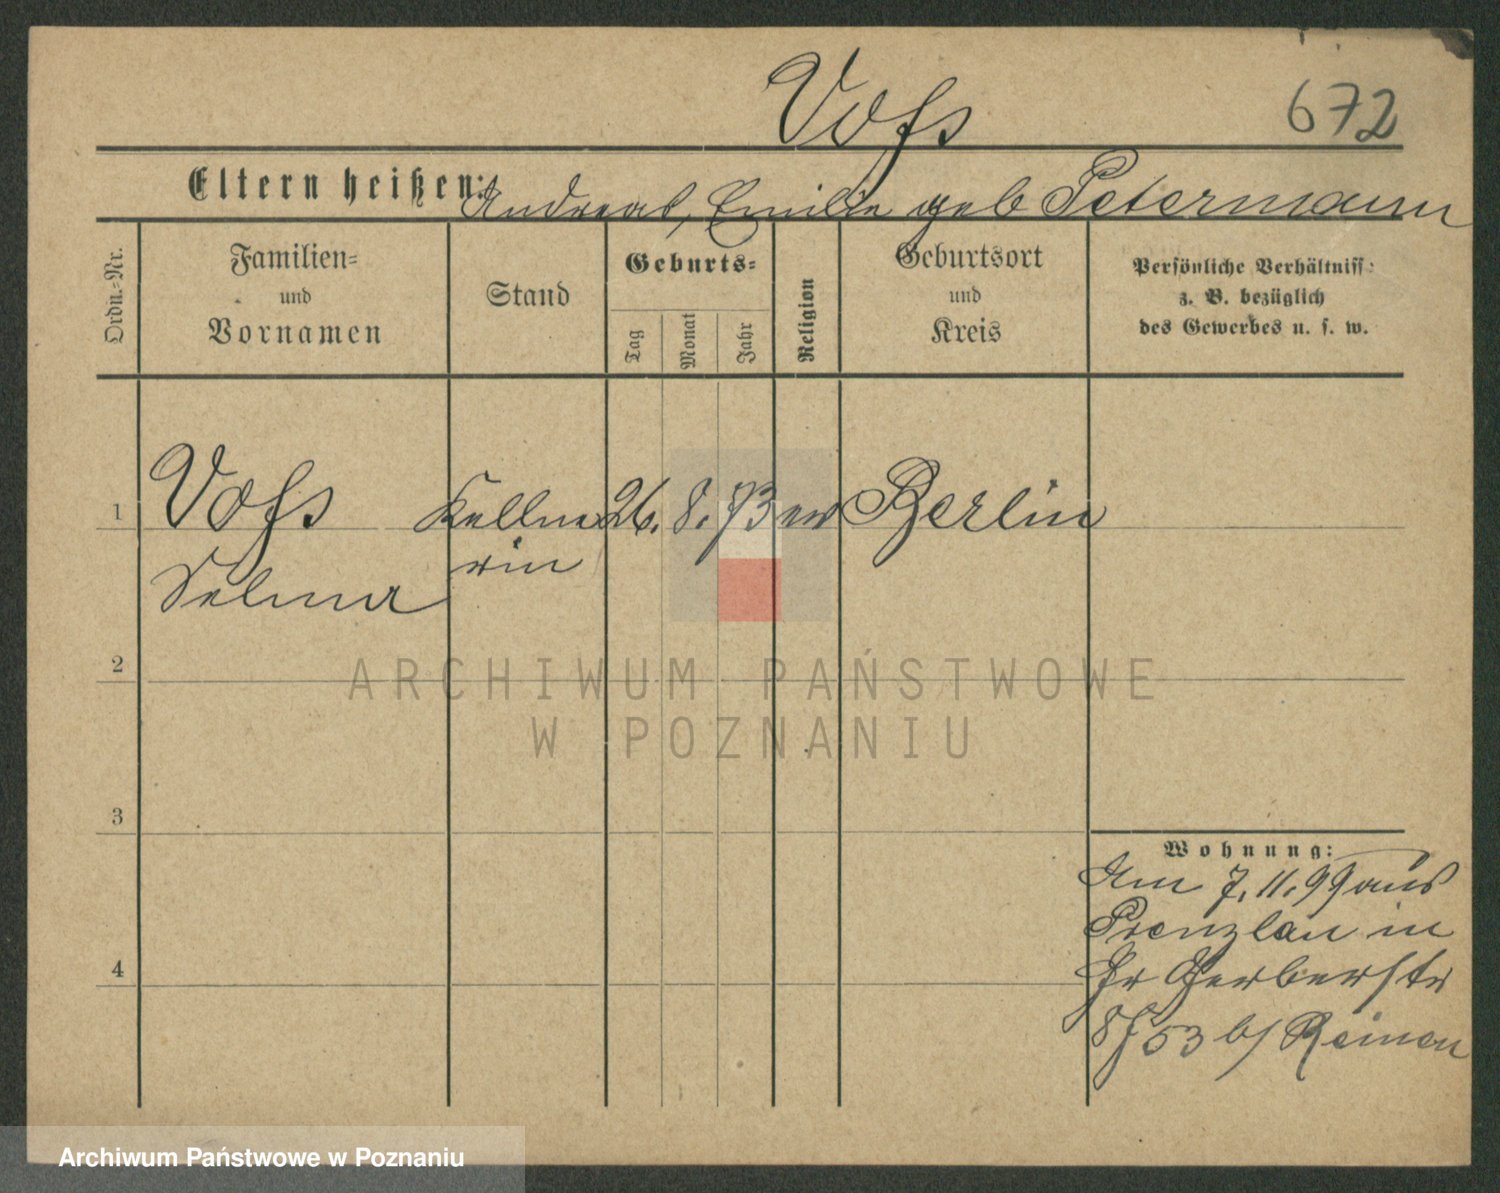 Voſs
672
Eltern heißen: Andreas, Emilie geb Petermann
Ordn.-Nr.
Familien-
und
Vornamen
Stand
Geburts-
Tag
Monat
Jahr
Religion
Geburtsort
und
Kreis
Persönliche Verhältniss:
z. B. bezüglich
des Gewerbes u. s. w.
1
Voſs
Selma
Kellne
rin
26. 8. 73
ev
Berlin
2
3
4
ARCHIWUM PAŃSTWOWE
W POZNANIU
Wohnung:
Am 7. 11. 99 aus
Prenzlau in
Gr Gerberstr
53 b/
Archiwum Państwowe w Poznaniu